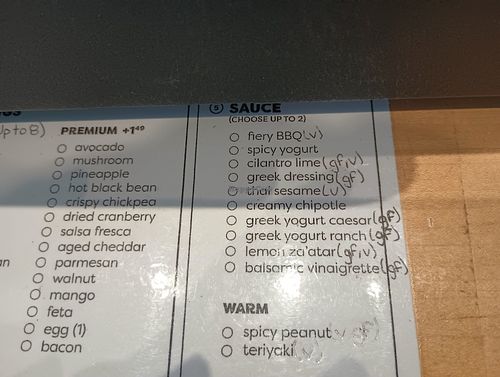 Up to 8)
PREMIUM +1⁴⁹
avocado
mushroom
pineapple
hot black bean
crispy chickpea
dried cranberry
salsa fresca
aged cheddar
parmesan
walnut
mango
feta
egg (1)
bacon
5 SAUCE
(CHOOSE UP TO 2)
fiery BBQ (v)
spicy yogurt
cilantro lime (gf, v)
greek dressing (gf)
thai sesame (v)
creamy chipotle
greek yogurt caesar (gf)
greek yogurt ranch (gf)
lemon za'atar (gf, v)
balsamic vinaigrette (gf)
WARM
spicy peanut v gf)
teriyaki (v)